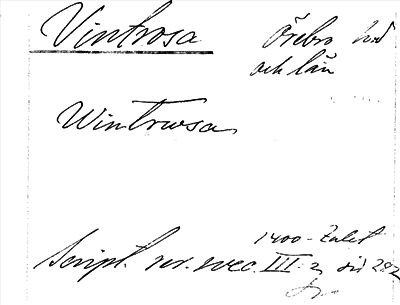 Vintrosa Örebro hd
och län
Wintrwsa
1400-talet
Script. rer. svec. III: 2, sid 282